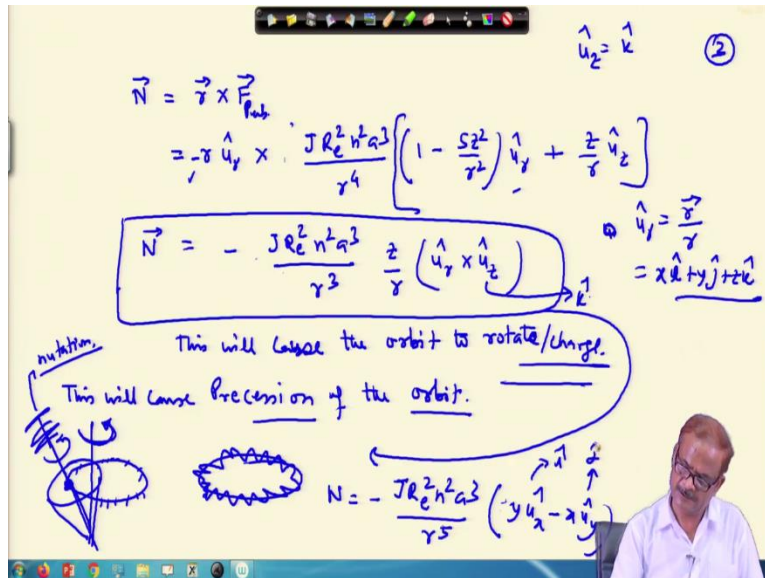 û_z = k̂ ②
N⃗ = r⃗ × F⃗_Pub
= -r û_r × JR_e²n²a³/r⁴ [(1 - 5z²/r²) û_r + z/r û_z]
û_r = r⃗/r
N⃗ = - JR_e²n²a³/r³ z/r (û_r × û_z) → k̂
= xî+yĵ+zk̂
This will cause the orbit to rotate/change.
nutation.
This will cause Precession of the orbit.
î ĵ
N = - JR_e²n²a³/r⁵ (yû_x - xû_y)